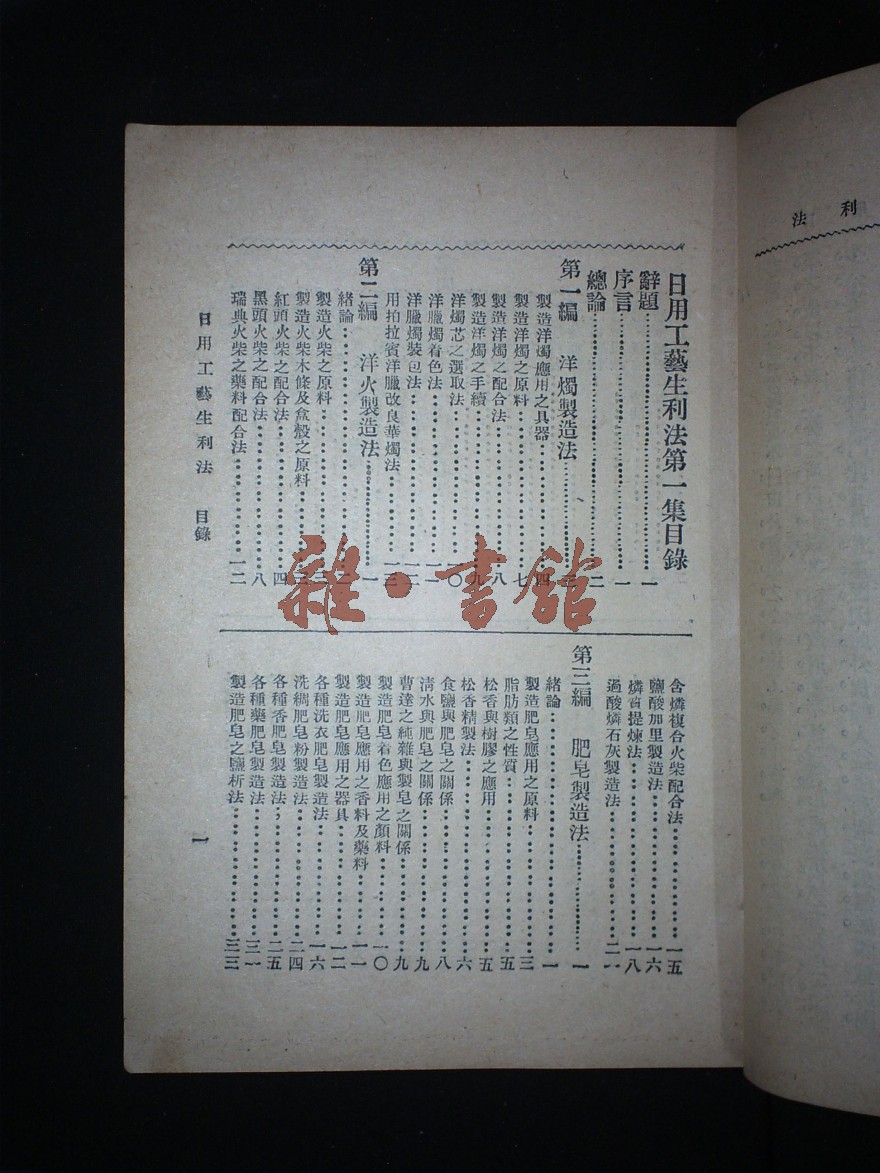 利法
日用工藝生利法第一集目錄
辭題……一
序言……一
總論……二
第一編　洋燭製造法……三
製造洋燭應用之具器……四
製造洋燭之原料……七
製造洋燭之配合法……八
製造洋燭之手續……九
洋燭芯之選取法……一〇
洋臘燭着色法……一一
洋臘燭裝包法……一二
用拍拉賓洋臘改良華燭法……一三
第二編　洋火製造法……一
緒論……二
製造火柴之原料……三
製造火柴木條及盒殼之原料……三
紅頭火柴之配合法……四
黑頭火柴之配合法……八
瑞典火柴之藥料配合法……一二
含燐複合火柴配合法……一五
鹽酸加里製造法……一六
燐質提煉法……一八
過酸燐石灰製造法……二一
第三編　肥皂製造法……一
緒論……一
製造肥皂應用之原料……三
脂肪類之性質……五
松香與樹膠之應用……五
松香精製法……六
食鹽與肥皂之關係……八
淸水與肥皂之關係……九
曹達之純雜與製皂之關係……九
製造肥皂着色應用之顏料……一〇
製造肥皂應用之香料及藥料……一一
製造肥皂應用之器具……一二
各種洗衣肥皂製造法……一六
洗綢肥皂粉製造法……二四
各種香肥皂製造法……二五
各種藥肥皂製造法……三一
製造肥皂之鹽析法……三三
日用工藝生利法　目錄
一
雜·書館